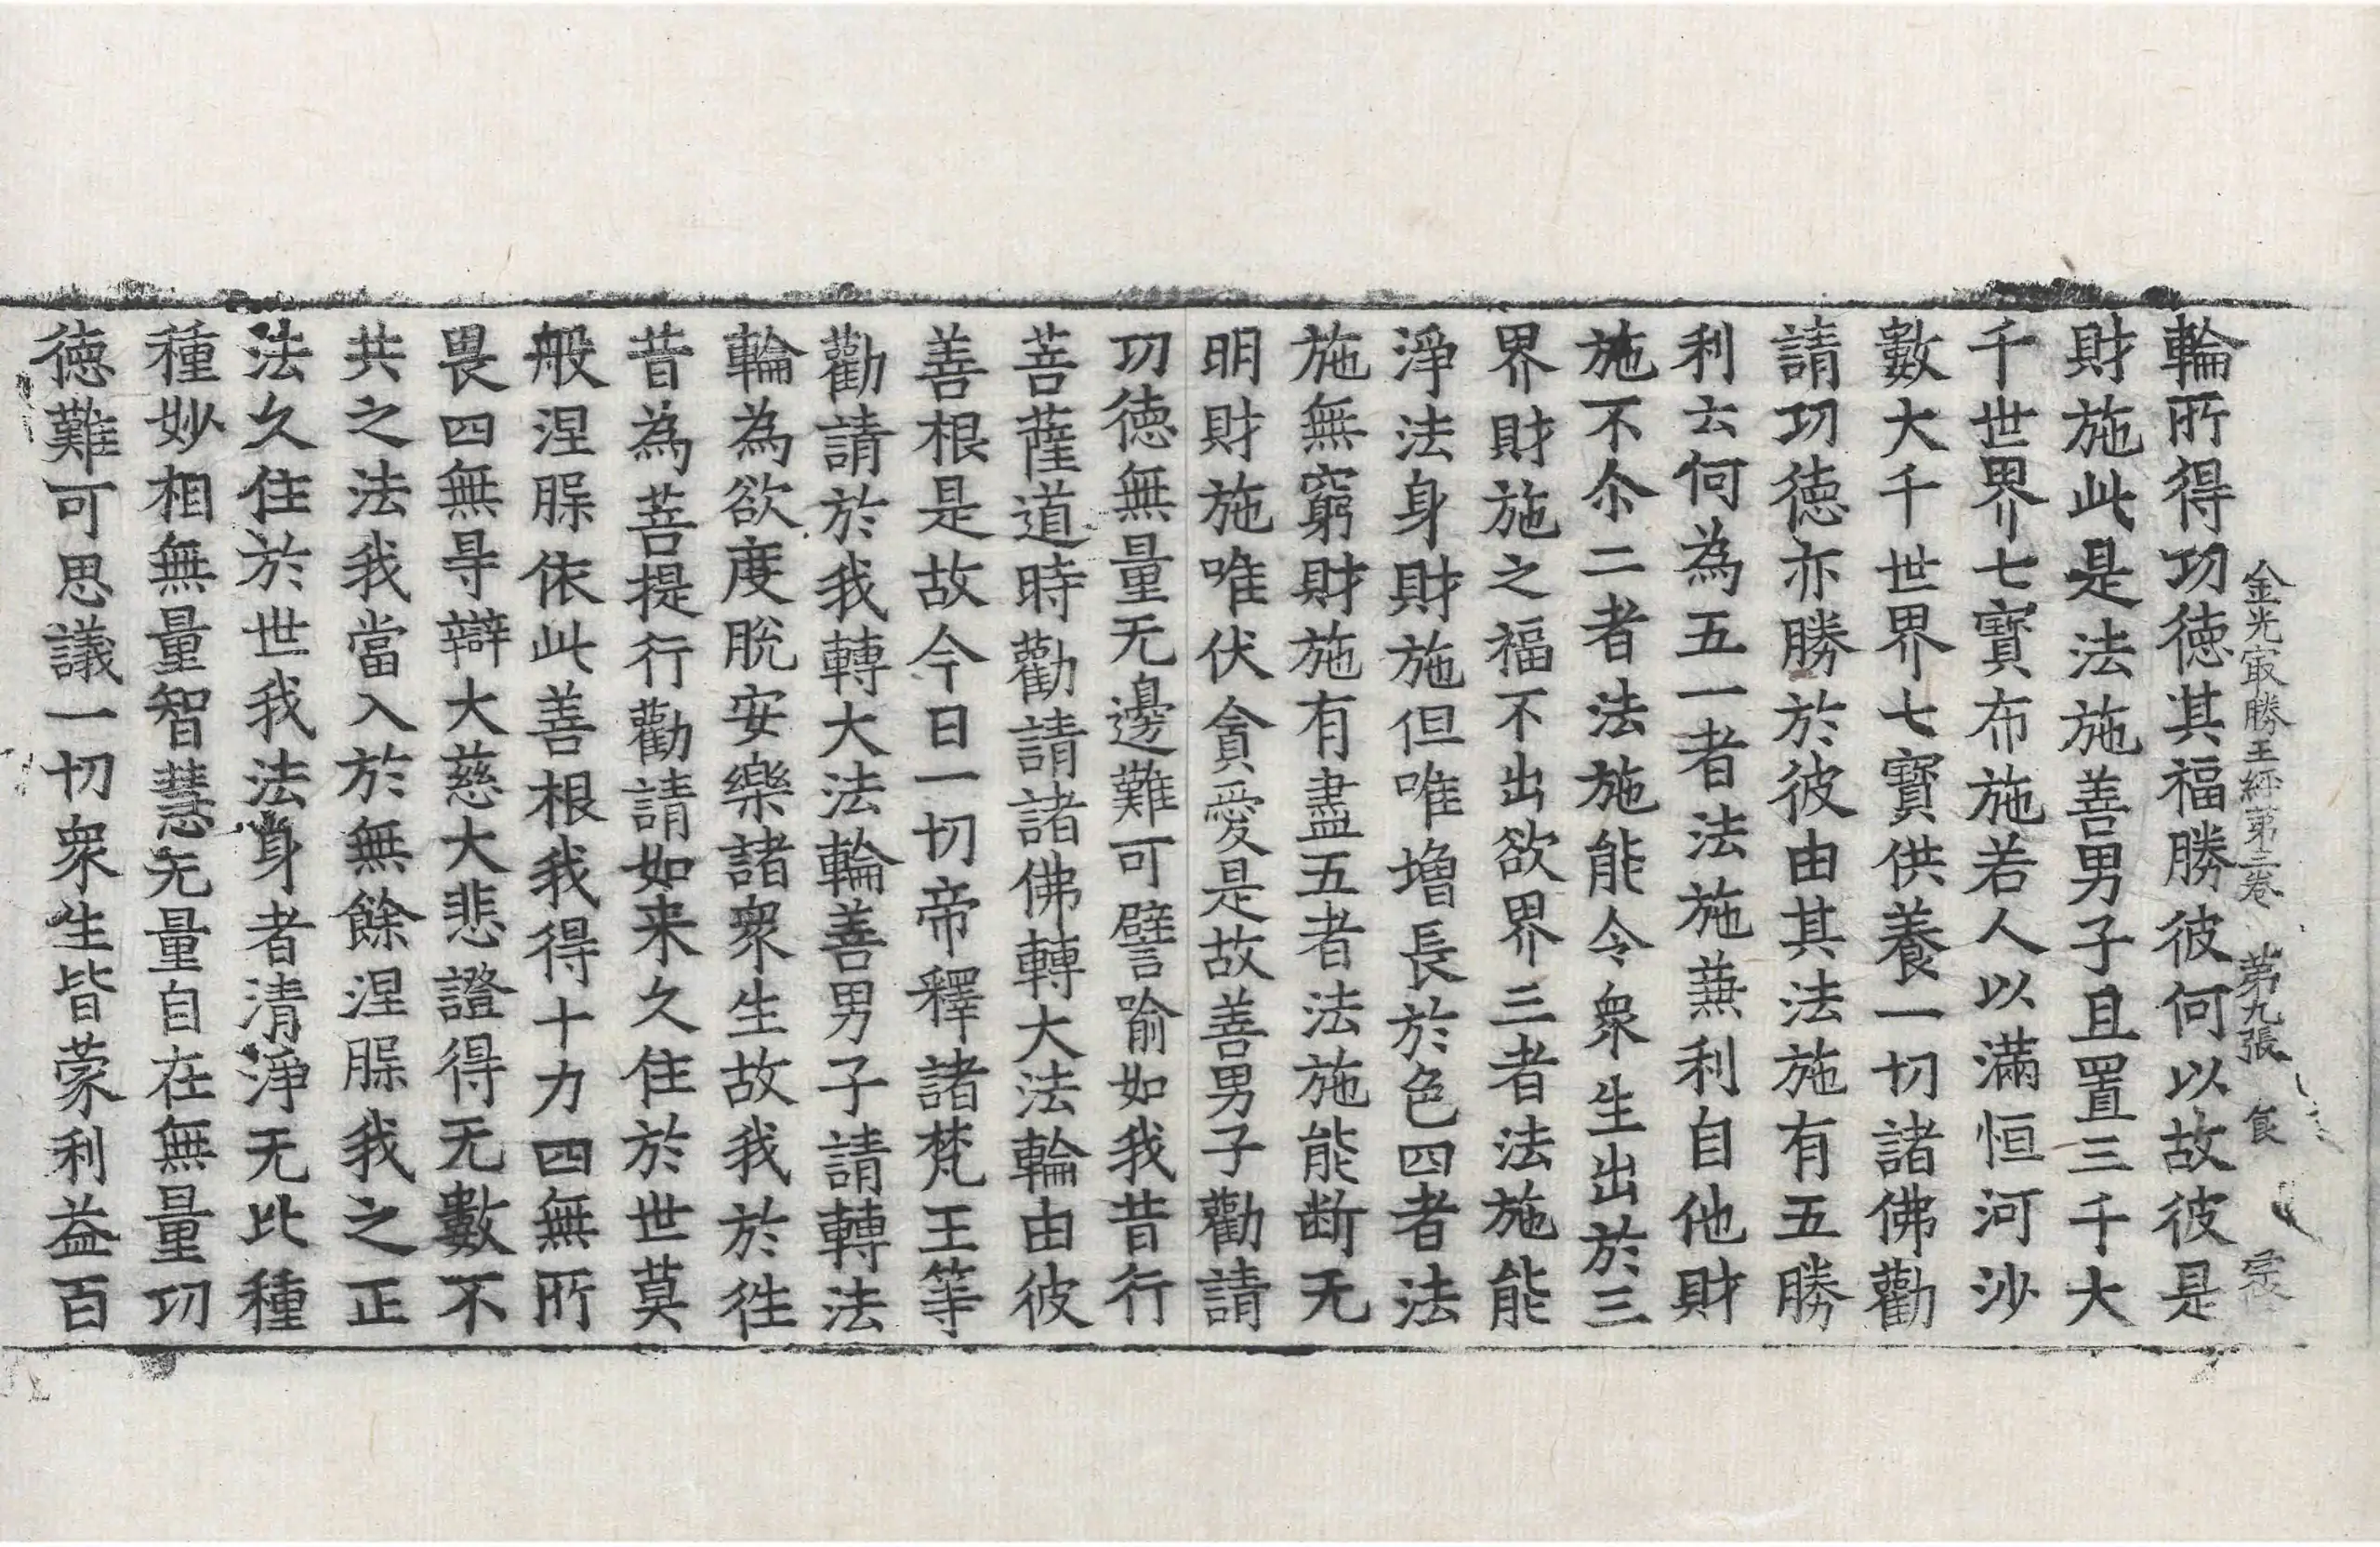 金光㝡勝王經第三卷 第九張 食
輪所得功徳其福勝彼何以故彼是
財施此是法施善男子且置三千大
千世界七寳布施若人以滿恒河沙
數大千世界七寳供養一切諸佛勸
請功徳亦勝於彼由其法施有五勝
利云何為五一者法施兼利自他財
施不尒二者法施能令衆生出於三
界財施之福不出欲界三者法施能
淨法身財施但唯增長於色四者法
施無窮財施有盡五者法施能断无
明財施唯伏貪愛是故善男子勸請
功徳無量无邊難可譬喻如我昔行
菩薩道時勸請諸佛轉大法輪由彼
善根是故今日一切帝釋諸梵王等
勸請於我轉大法輪善男子請轉法
輪為欲度脫安樂諸衆生故我於徃
昔為菩提行勸請如来久住於世莫
般涅槃依此善根我得十力四無所
畏四無㝵辯大慈大悲證得无數不
共之法我當入於無餘涅槃我之正
法久住於世我法身者清淨无比種
種妙相無量智慧无量自在無量功
徳難可思議一切衆生皆蒙利益百